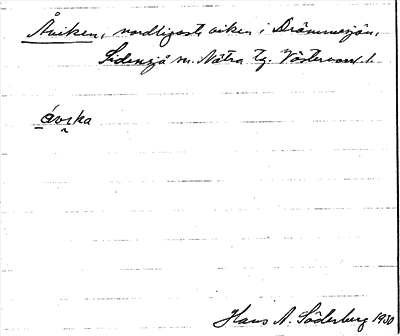 Åviken, nordligaste viken i Drömmesjön,
Sidensjö sn. Nätra tg. Västernorrl. l.
åvıka
Hans A. Söderberg 1930